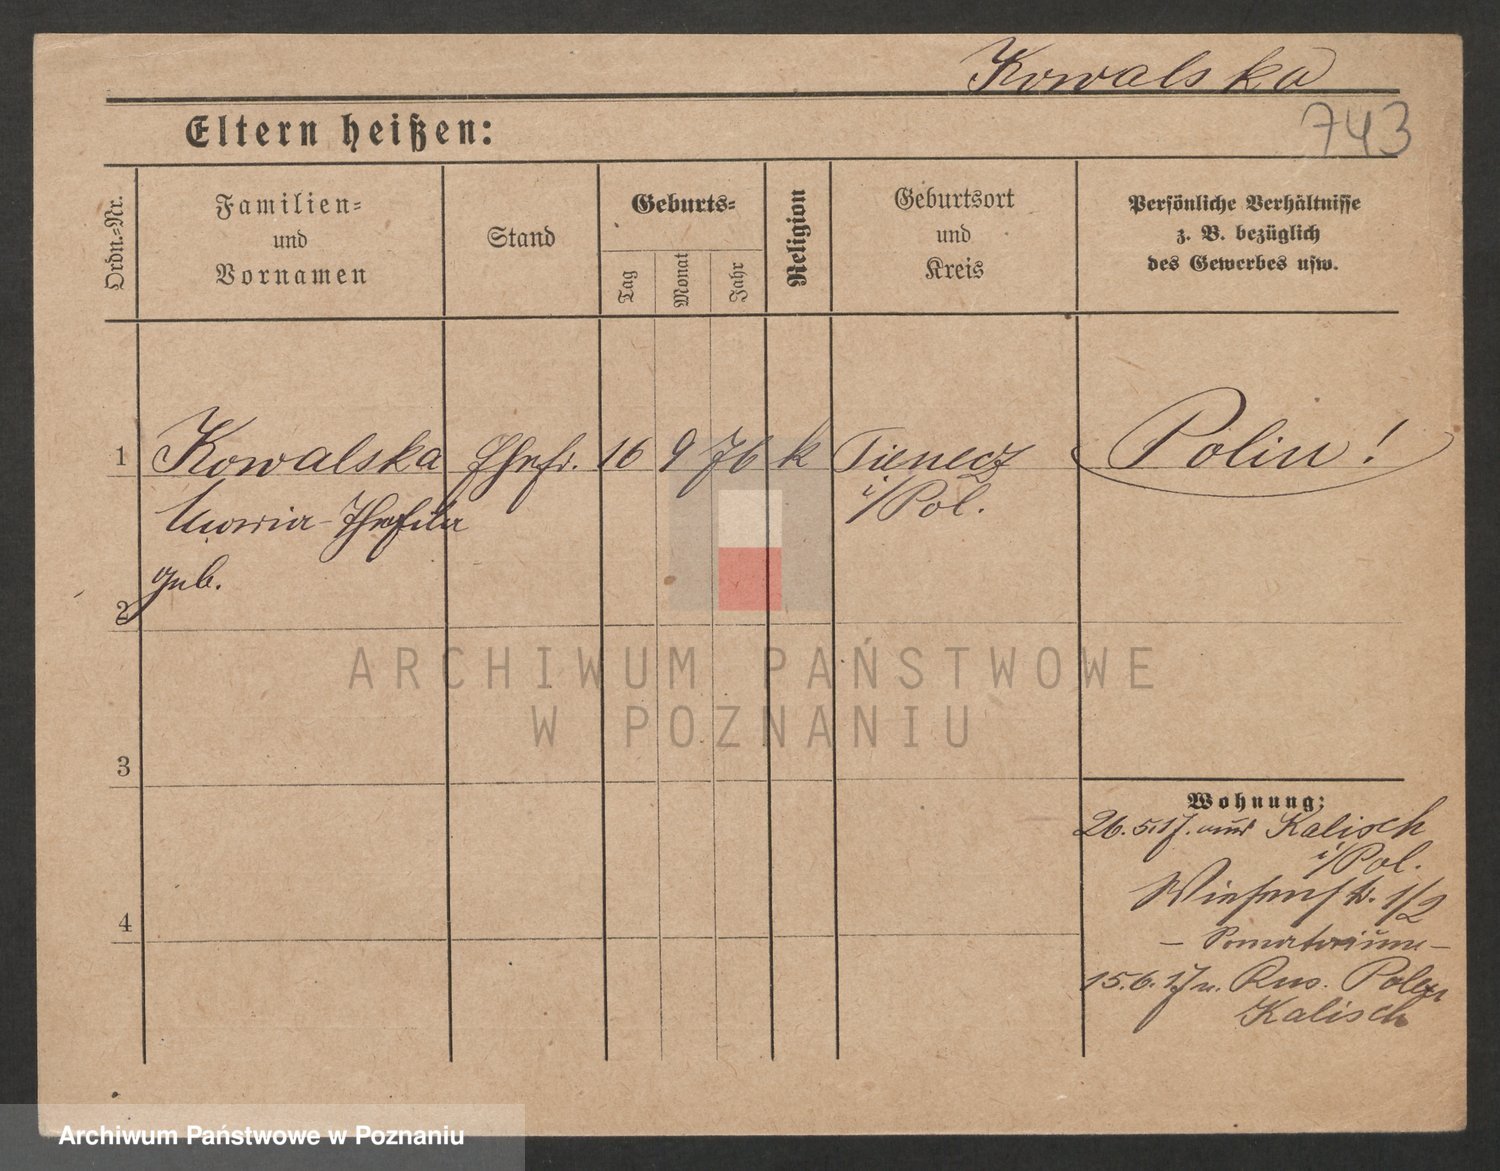 Kowalska
743
Eltern heißen:
Ordn.-Nr.
Familien-
und
Vornamen
Stand
Geburts-
Tag
Monat
Jahr
Religion
Geburtsort
und
Kreis
Persönliche Verhältnisse
z. B. bezüglich
des Gewerbes usw.
1 Kowalska Ehefr. 16 9 76 k Tienecz Polin!
Maria- i/Pol.
geb.
2
ARCHIWUM PAŃSTWOWE
W POZNANIU
3
Wohnung:
26.5.17. aus Kalisch
i/Pol.
Wiesenstr. 1/2
4
15.6.17 n. Rus. Polen
Kalisch
Archiwum Państwowe w Poznaniu